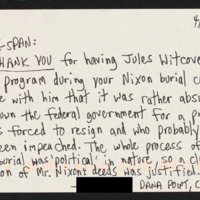 -SPAN:
THANK YOU for having Jules Witcove
program during your Nixon burial c
e with him that it was rather absu
own the federal government for a p
s forced to resign and who probably
een impeached. The whole process of
burial was 'political' in nature, so a cl
on of Mr. Nixon's deeds was justified.
DANA POINT, C